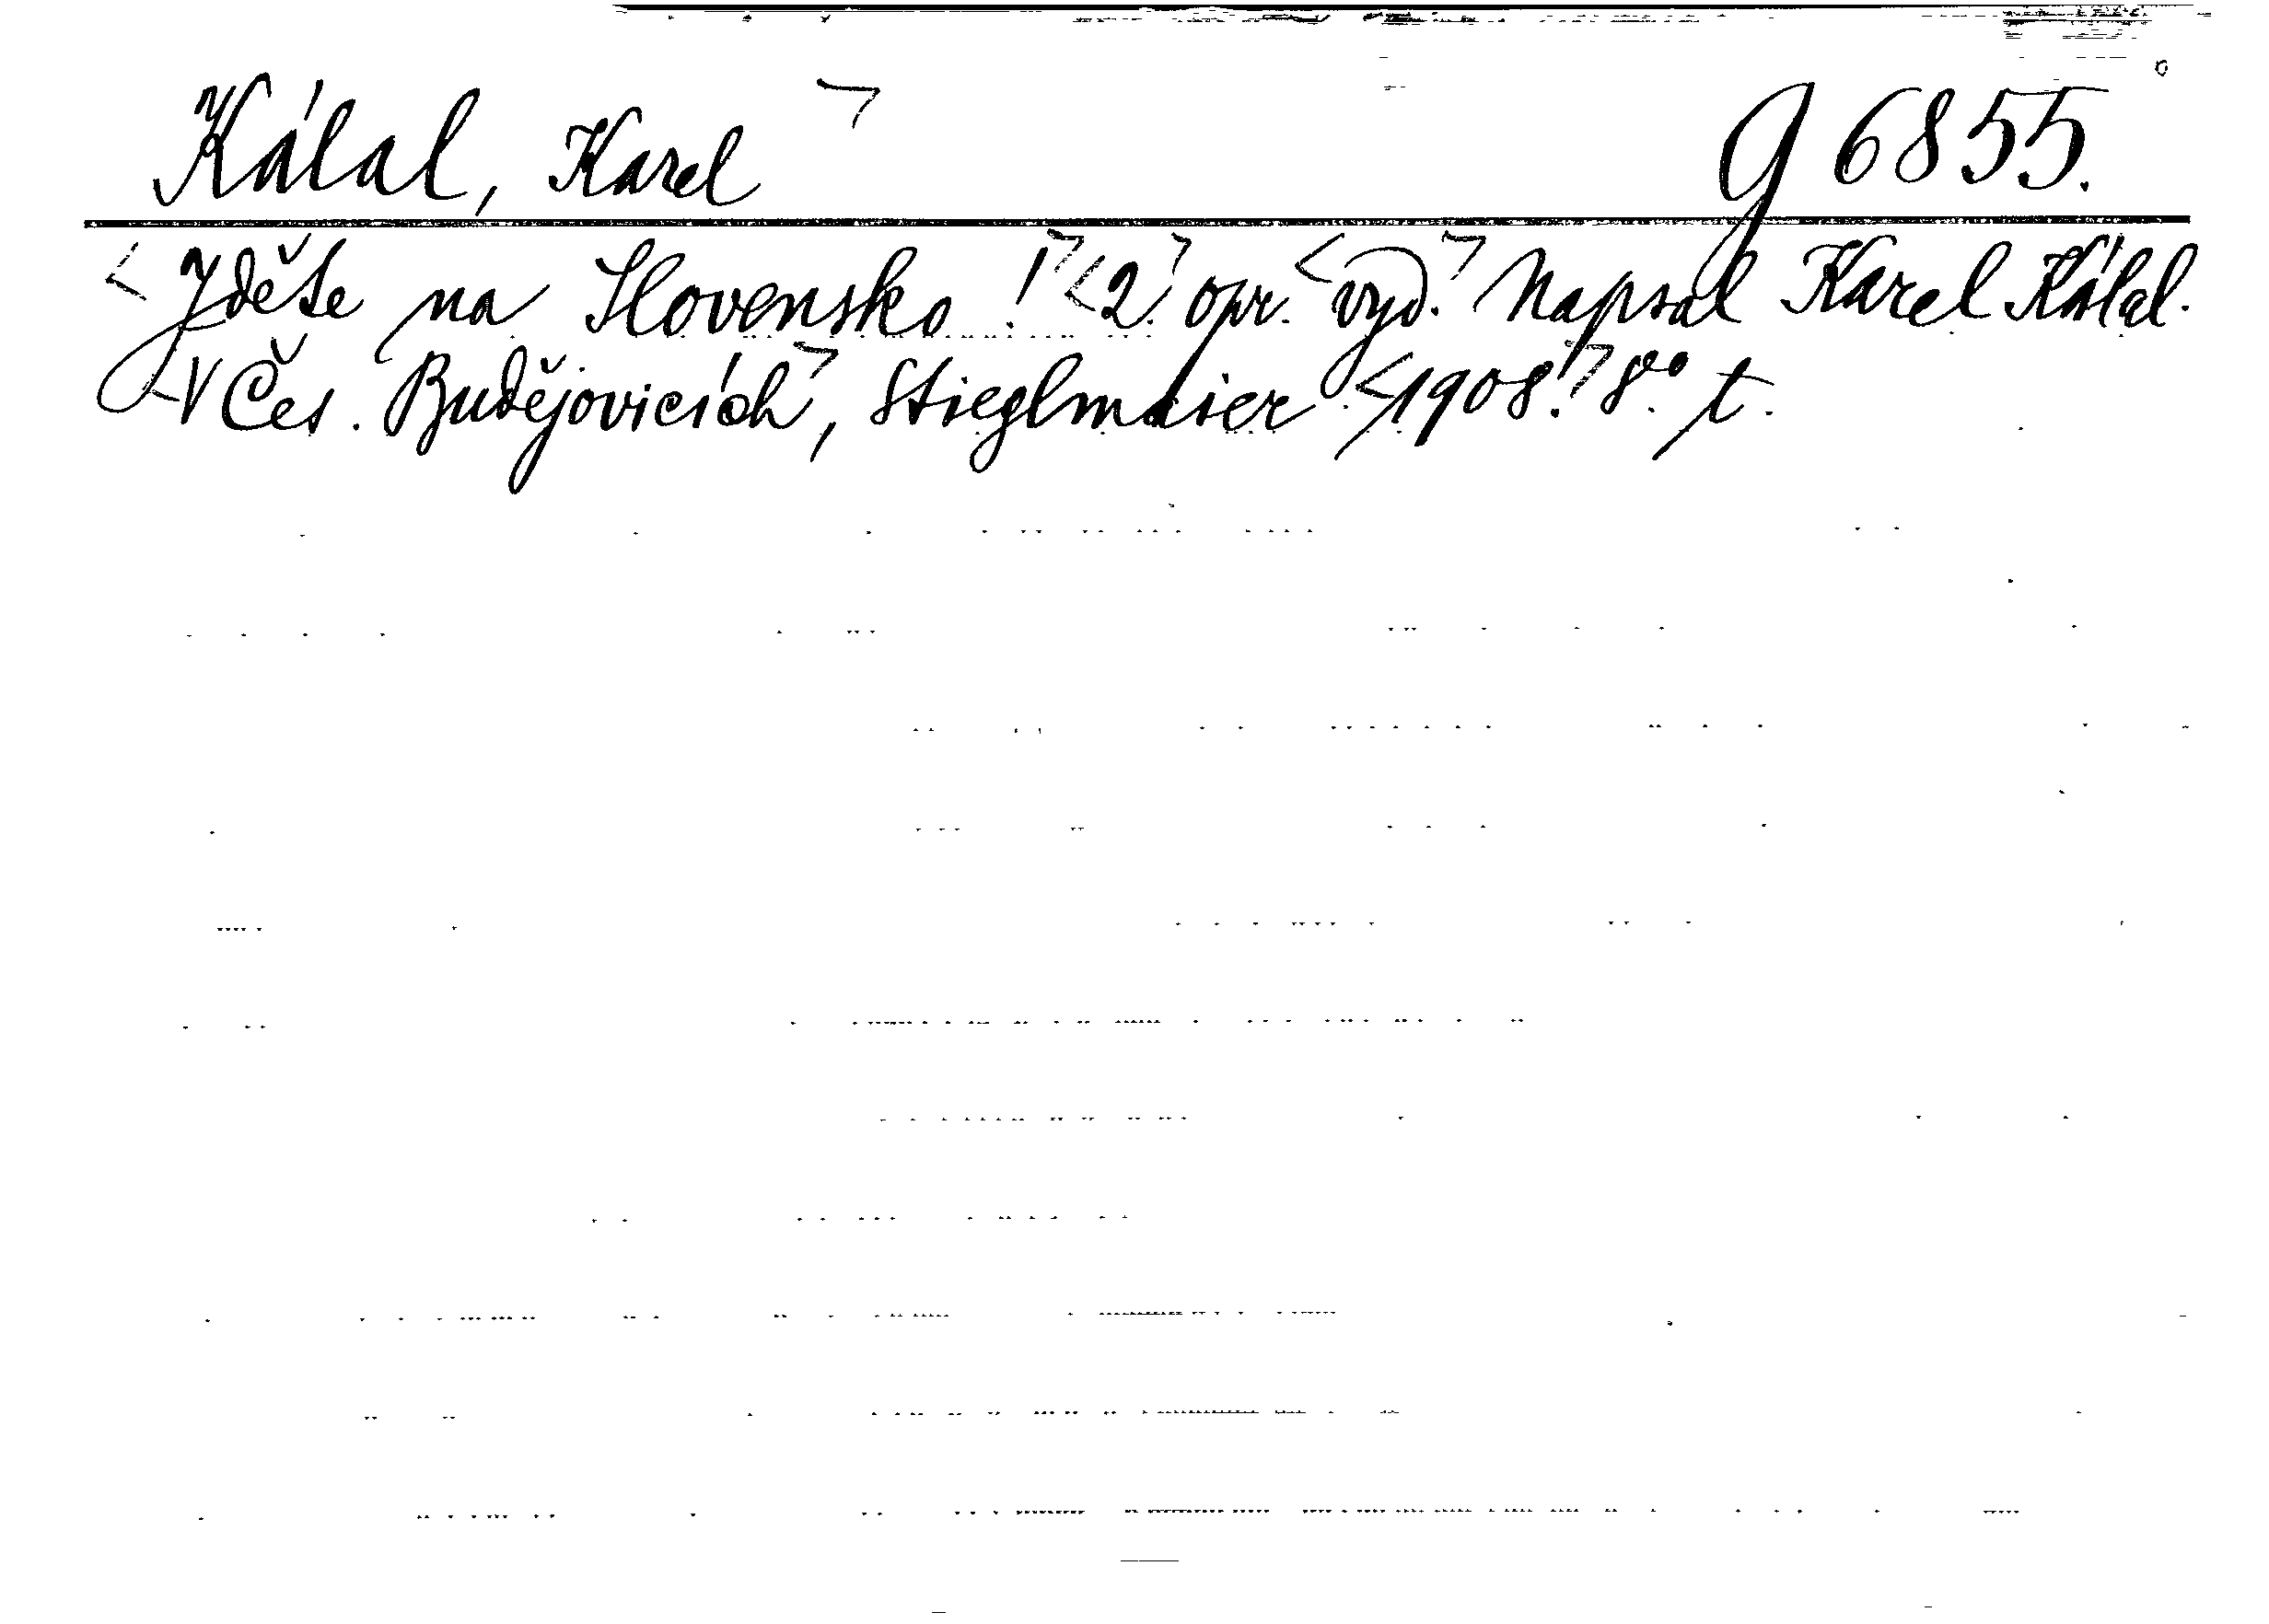 Kálal, Karel g 6855.
Jděte na Slovensko! 2. opr. vyd. Napsal Karel Kálal.
V Čes. Budějovicích, Stieglmaier 1908. 8°. t.